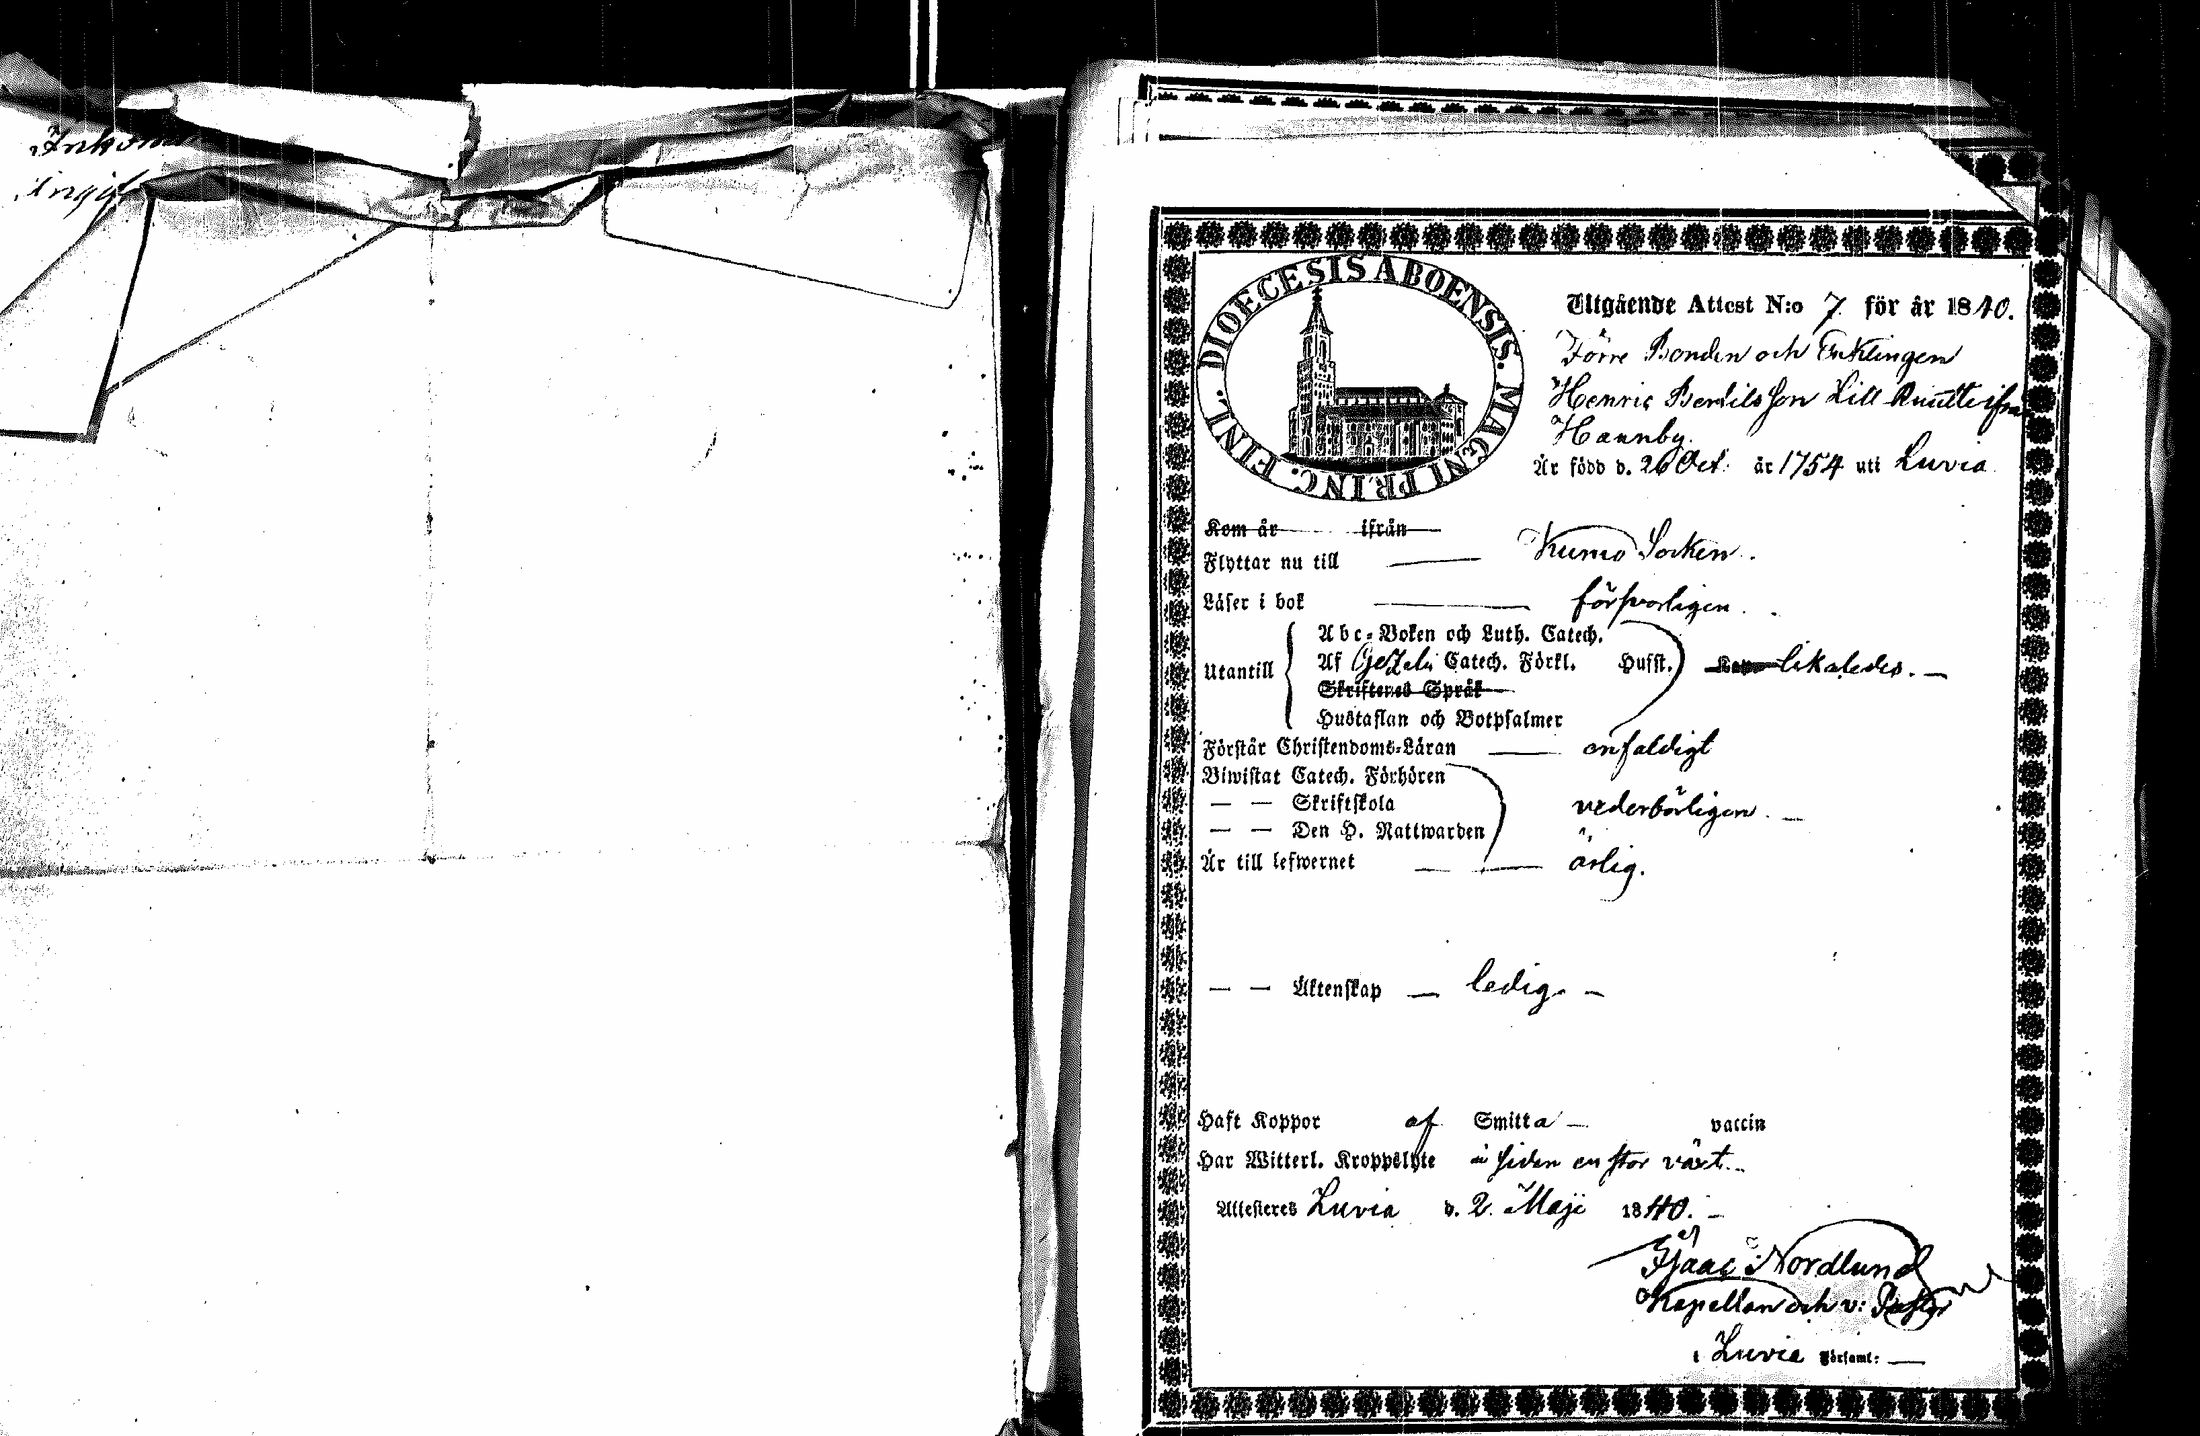 Inkom
Ingif
DIOECESIS ABOENSIS. MAGNI PRINC. FINL.
Utgående Attest N:o 7 för år 1840.
Förre Bonden och Enklingen
Henric Bertilsson Lill Knutte ifrån
Hannby.
Är född d. 26 Oct. år 1754 uti Luvia
Kom år ifrån
Flyttar nu till Kumo Socken.
Läser i bok försvarligen.
Abc-Boken och Luth. Catech.
Utantill Af Gezelii Catech. Förkl. Husst. likaledes.
Skriftenes Språk
Hustaflan och Botpsalmer
Förstår Christendoms-Läran enfaldigt
Biwistat Catech. Förhören
— — Skriftskola vederbörligen. —
— — Den H. Nattwarden
Är till lefwernet — — ärlig.
— — Äktenskap — ledig. —
Haft Koppor af Smitta — vaccin
Har Witterl. Kroppslyte i siden en stor växt. —
Attesteras Luvia d. 2. Maji 1840. —
Isaac Nordlund
Kapellan och v: Pastor
i Luvia Församl: —